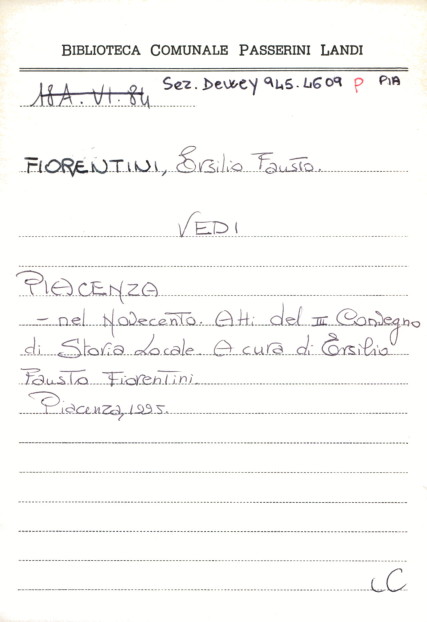 BIBLIOTECA COMUNALE PASSERINI LANDI
18A.VI.84 Sez. Dewey 945.4609 P PIA
FIORENTINI, Ersilio Fausto.
VEDI
PIACENZA
- nel Novecento. Atti del III Convegno
di Storia Locale. A cura di Ersilio
Fausto Fiorentini.
Piacenza, 1995.
LC